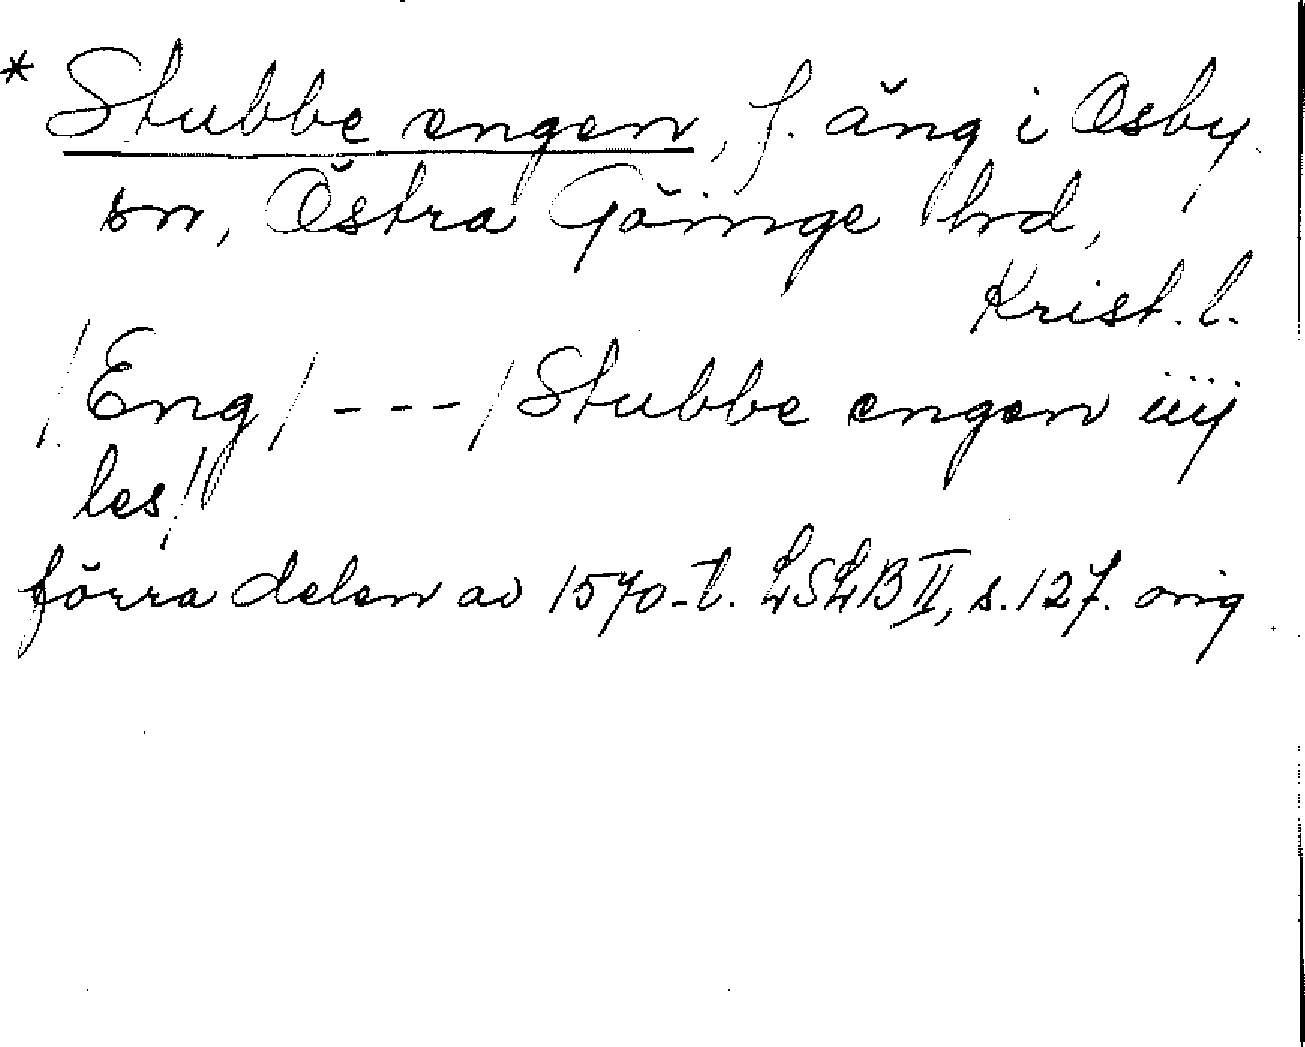 * Stubbe engen, f. äng i Osby
sn, Östra Göinge hd,
Krist. l.
/Eng/ - - - /Stubbe engen iiij
les//
förra delen av 1570-t. LSLB II, s. 127. orig